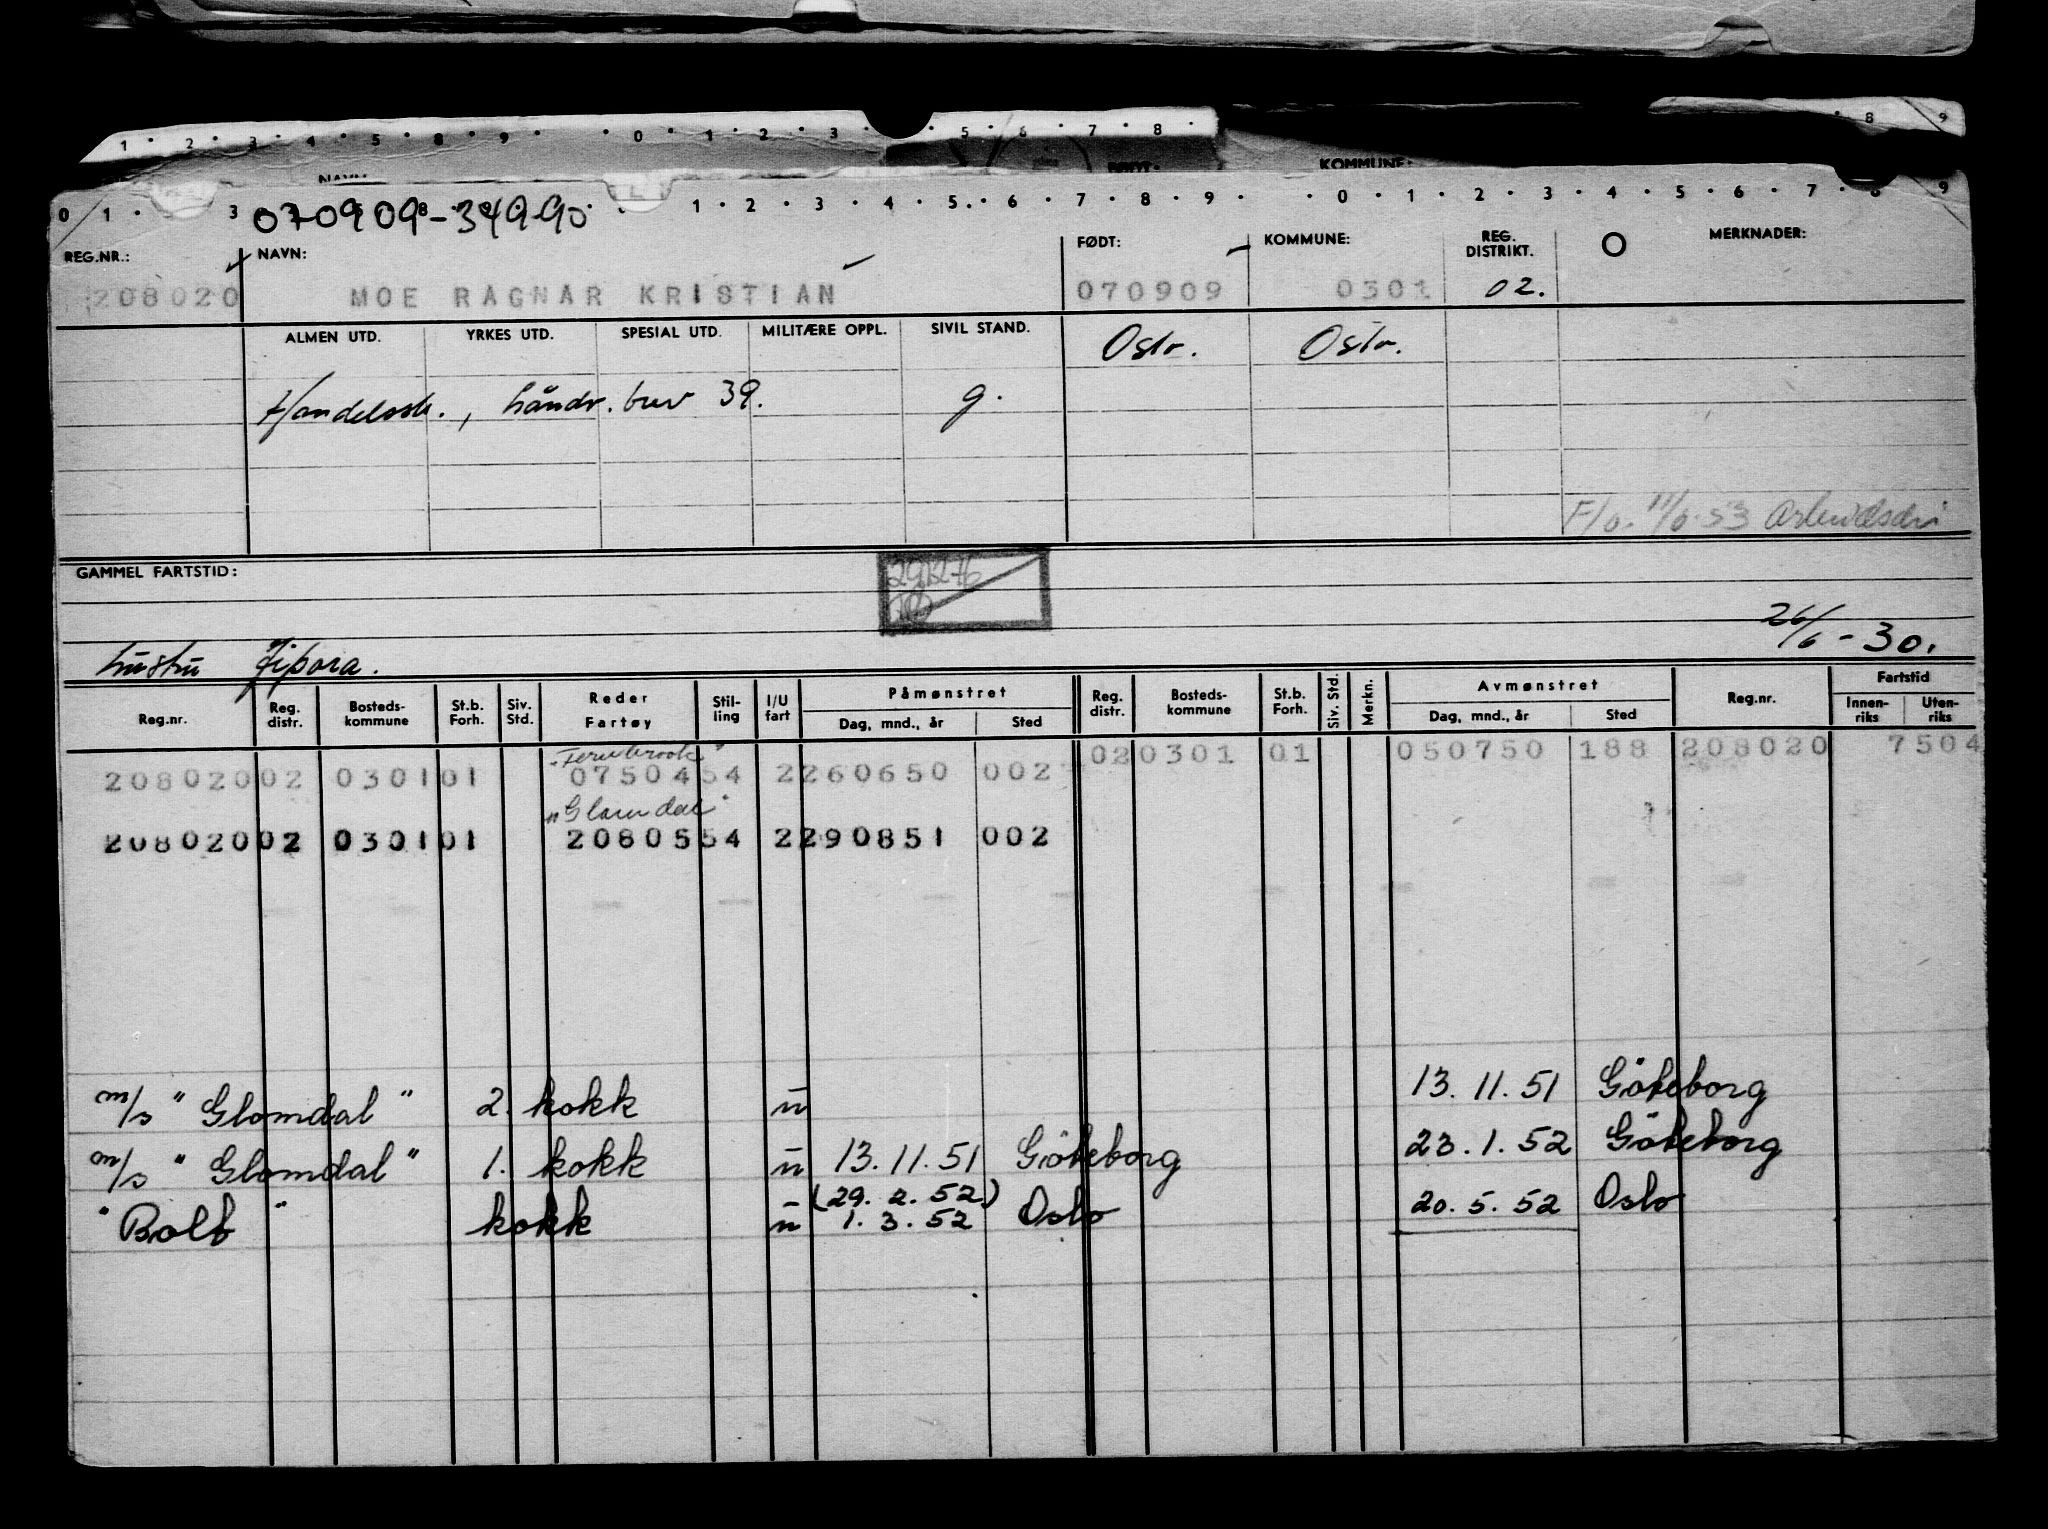 1 · 2 · 3 · 4 · 5 · 8 · 9 · · 0 · 1 · 2 · 3 · 5 · 6 · 7 · 8 · 8 9
NAVN: FØDT: KOMMUNE:
0 1 · 3 · 1 · 2 · 3 · 4 · 5 · 6 · 7 · 8 · 9 · · 0 · 1 · 2 · 3 · 4 · 5 · 6 · 7 · 8 9
070909-34990
REG.NR.: NAVN: FØDT: KOMMUNE: REG. DISTRIKT. MERKNADER:
208020 MOE RAGNAR KRISTIAN 070909 0301 02.
ALMEN UTD. YRKES UTD. SPESIAL UTD. MILITÆRE OPPL. SIVIL STAND. Oslo. Oslo.
Handelssk., håndv. brev 39. g.
F/o. 11/6.53
GAMMEL FARTSTID:
291276
26/6-30.
hustru Zipora.
Reg.nr. Reg. distr. Bosteds-kommune St.b. Forh. Siv. Std. Reder Fartøy Stil-ling I/U fart Påmønstret Dag, mnd., år Sted Reg. distr. Bosteds-kommune St.b. Forh. Siv. Std. Merkn. Avmønstret Dag, mnd., år Sted Reg.nr. Fartstid Innen-riks Uten-riks
"Fernbrook"
020301 01 050750 188 208020 7504
20802002 030101 0750454 2260650 002
"Glomdal"
20802002 030101 2080554 2290851 002
m/s "Glomdal" 2. kokk u 13.11.51 Göteborg
m/s "Glomdal" 1. kokk u 13.11.51 Göteborg 23.1.52 Göteborg
(29.2.52)
"Bolt" kokk u 1.3.52 Oslo 20.5.52 Oslo